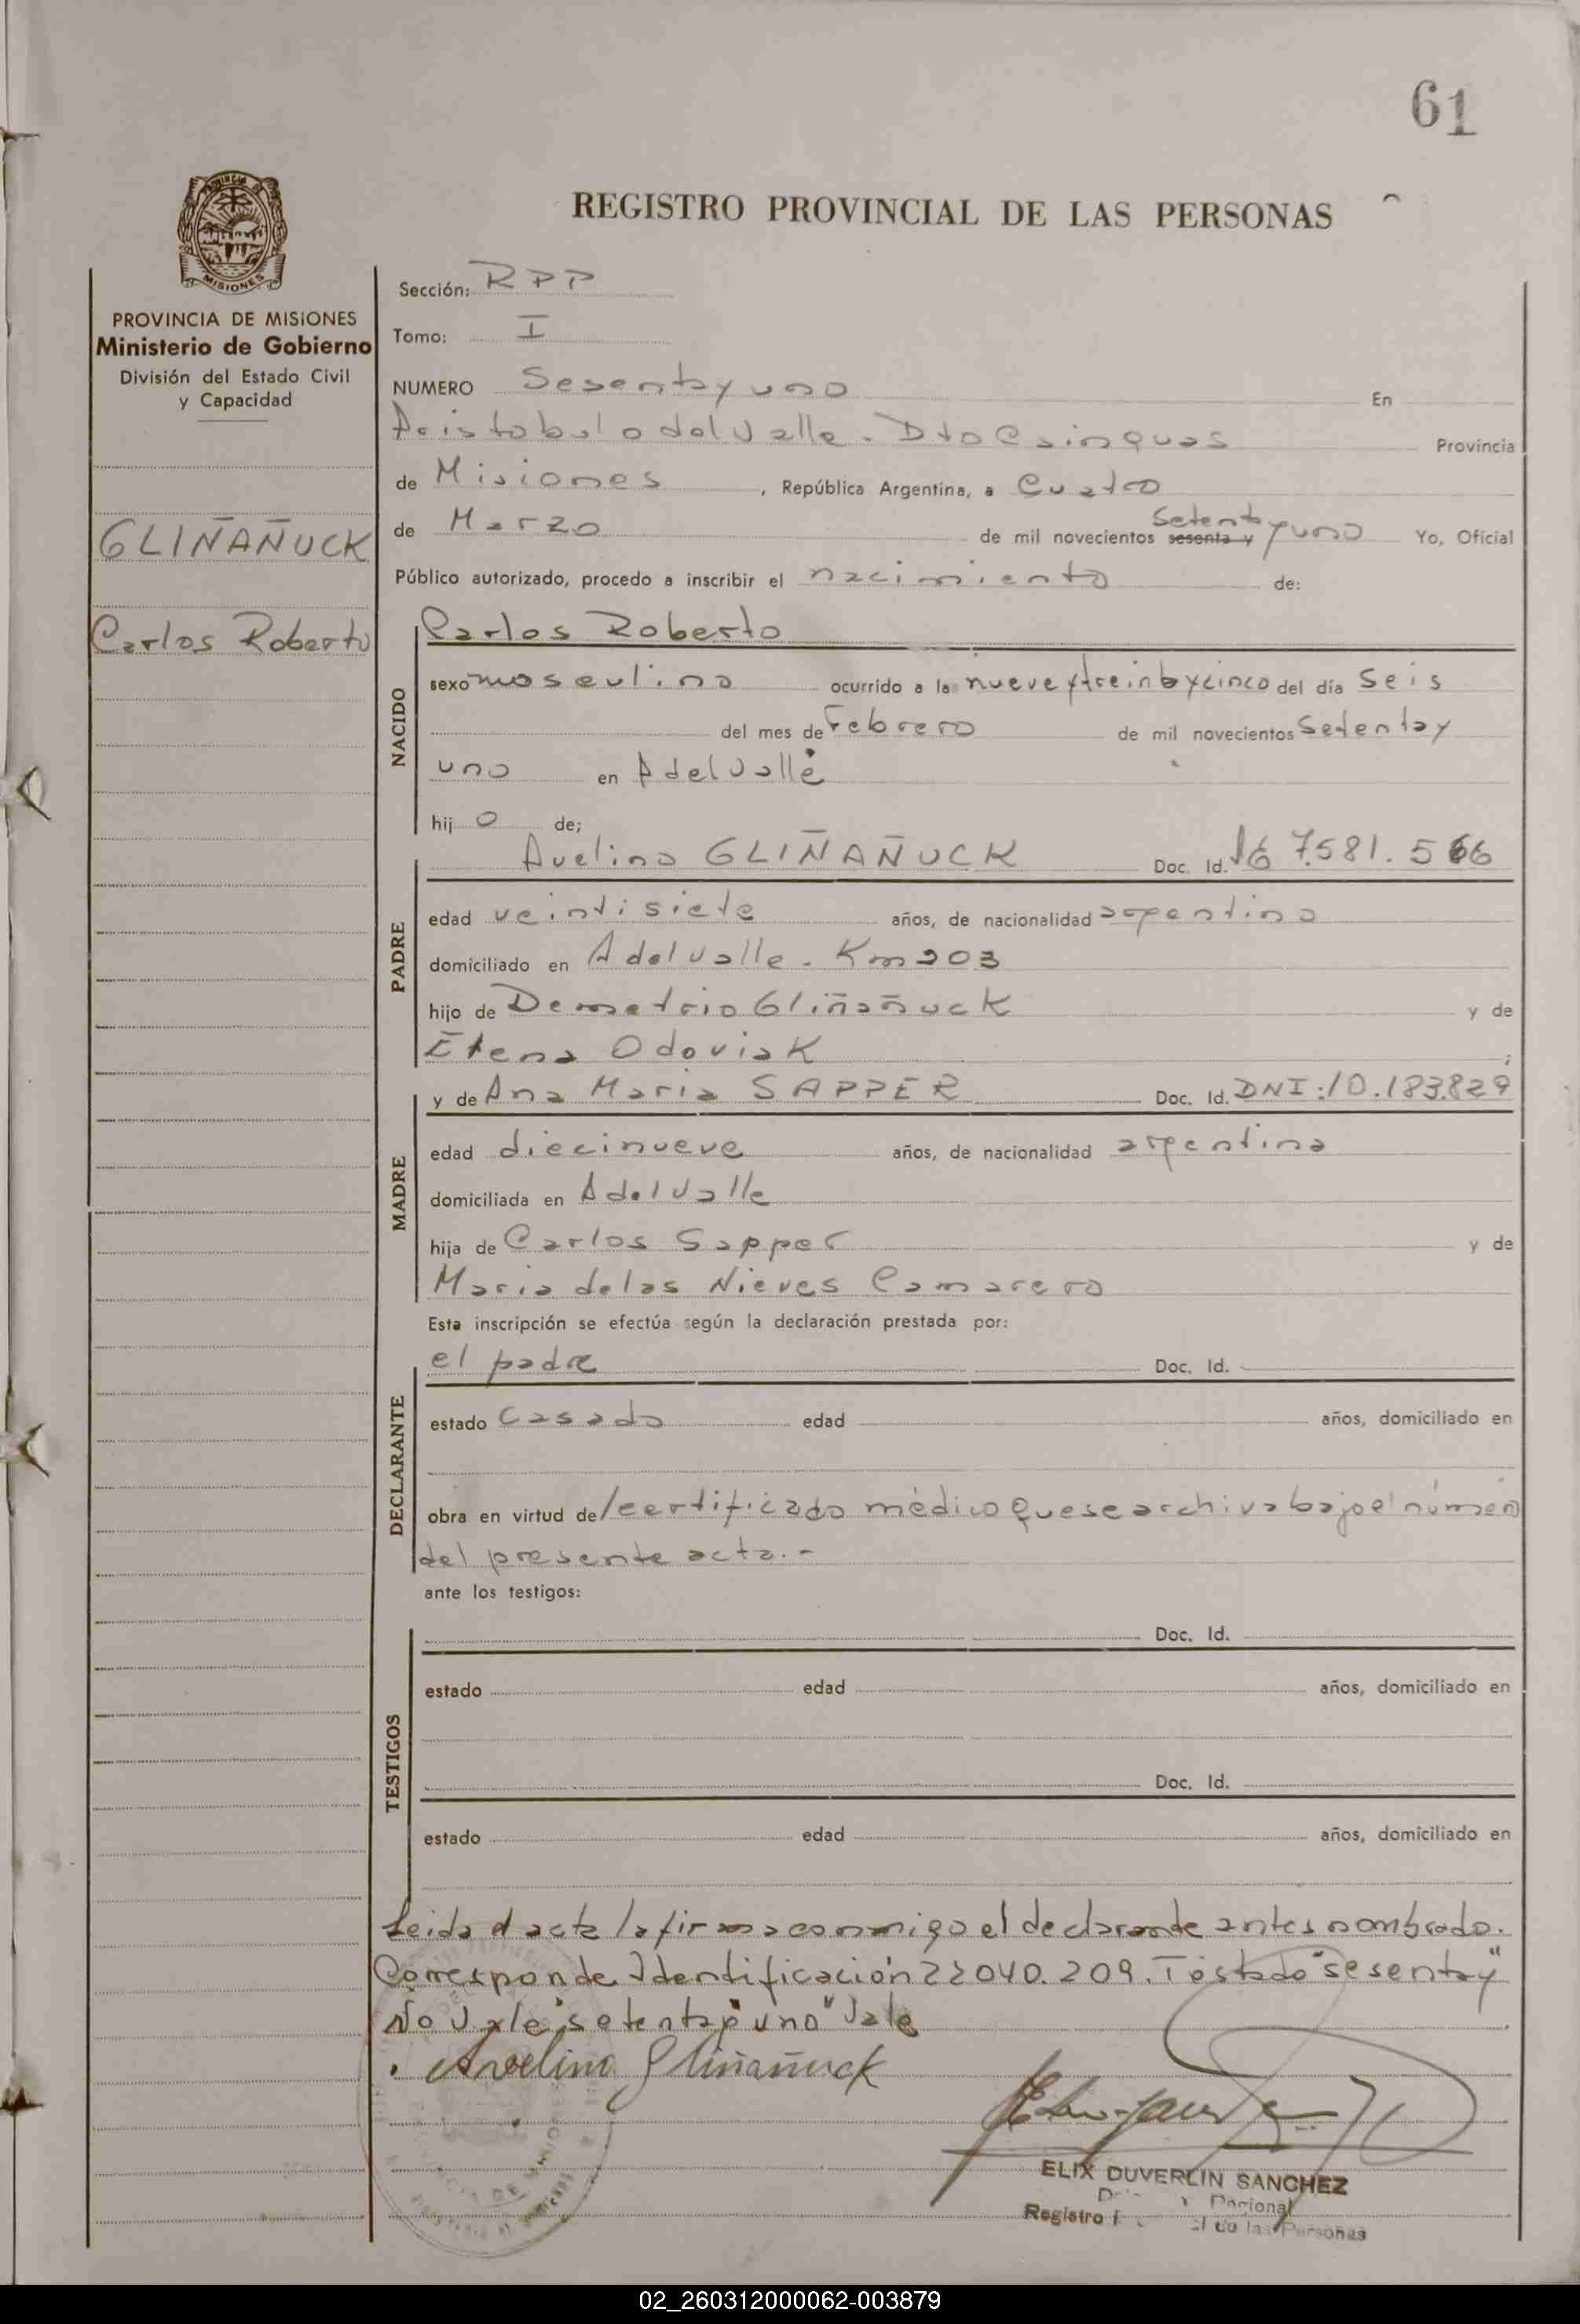 61
REGISTRO PROVINCIAL DE LAS PERSONAS
MISIONES
PROVINCIA DE MISIONES
Ministerio de Gobierno
División del Estado Civil
y Capacidad
GLIÑAÑUCK
Carlos Roberto
Sección: RPP
Tomo: I
NUMERO Sesenta y uno En
Aristobulo del Valle. Dto Cainguas Provincia
de Misiones, República Argentina, a Cuatro
de Marzo de mil novecientos sesenta y Setenta y uno Yo, Oficial
Público autorizado, procedo a inscribir el nacimiento de:
NACIDO
Carlos Roberto
sexo masculino ocurrido a las nueve y treinta y cinco del día Seis
del mes de Febrero de mil novecientos Setenta y
uno en A del Valle
hijo de;
PADRE
Avelino GLIÑAÑUCK Doc. Id. 7.581.566
edad veintisiete años, de nacionalidad argentina
domiciliado en A del Valle. Km 203
hijo de Demetrio Gliñañuck y de
Elena Odoviak;
MADRE
y de Ana Maria SAPPER Doc. Id. DNI: 10.183.829
edad diecinueve años, de nacionalidad argentina
domiciliada en A del Valle
hija de Carlos Sapper y de
Maria de las Nieves Camarero
Esta inscripción se efectúa según la declaración prestada por:
DECLARANTE
el padre Doc. Id.
estado casado edad años, domiciliado en
obra en virtud de/certificado médico que se archiva bajo el número
del presente acta.-
ante los testigos:
TESTIGOS
Doc. Id.
estado edad años, domiciliado en
Doc. Id.
estado edad años, domiciliado en
Leida el acta la firma conmigo el declarante antes nombrado.
Corresponde Identificación 22040.209. Testado "sesenta y"
No Vale "setenta y uno" Vale
Avelino Gliñañuck
ELIX DUVERLIN SANCHEZ
Registro de las Personas
02_260312000062-003879